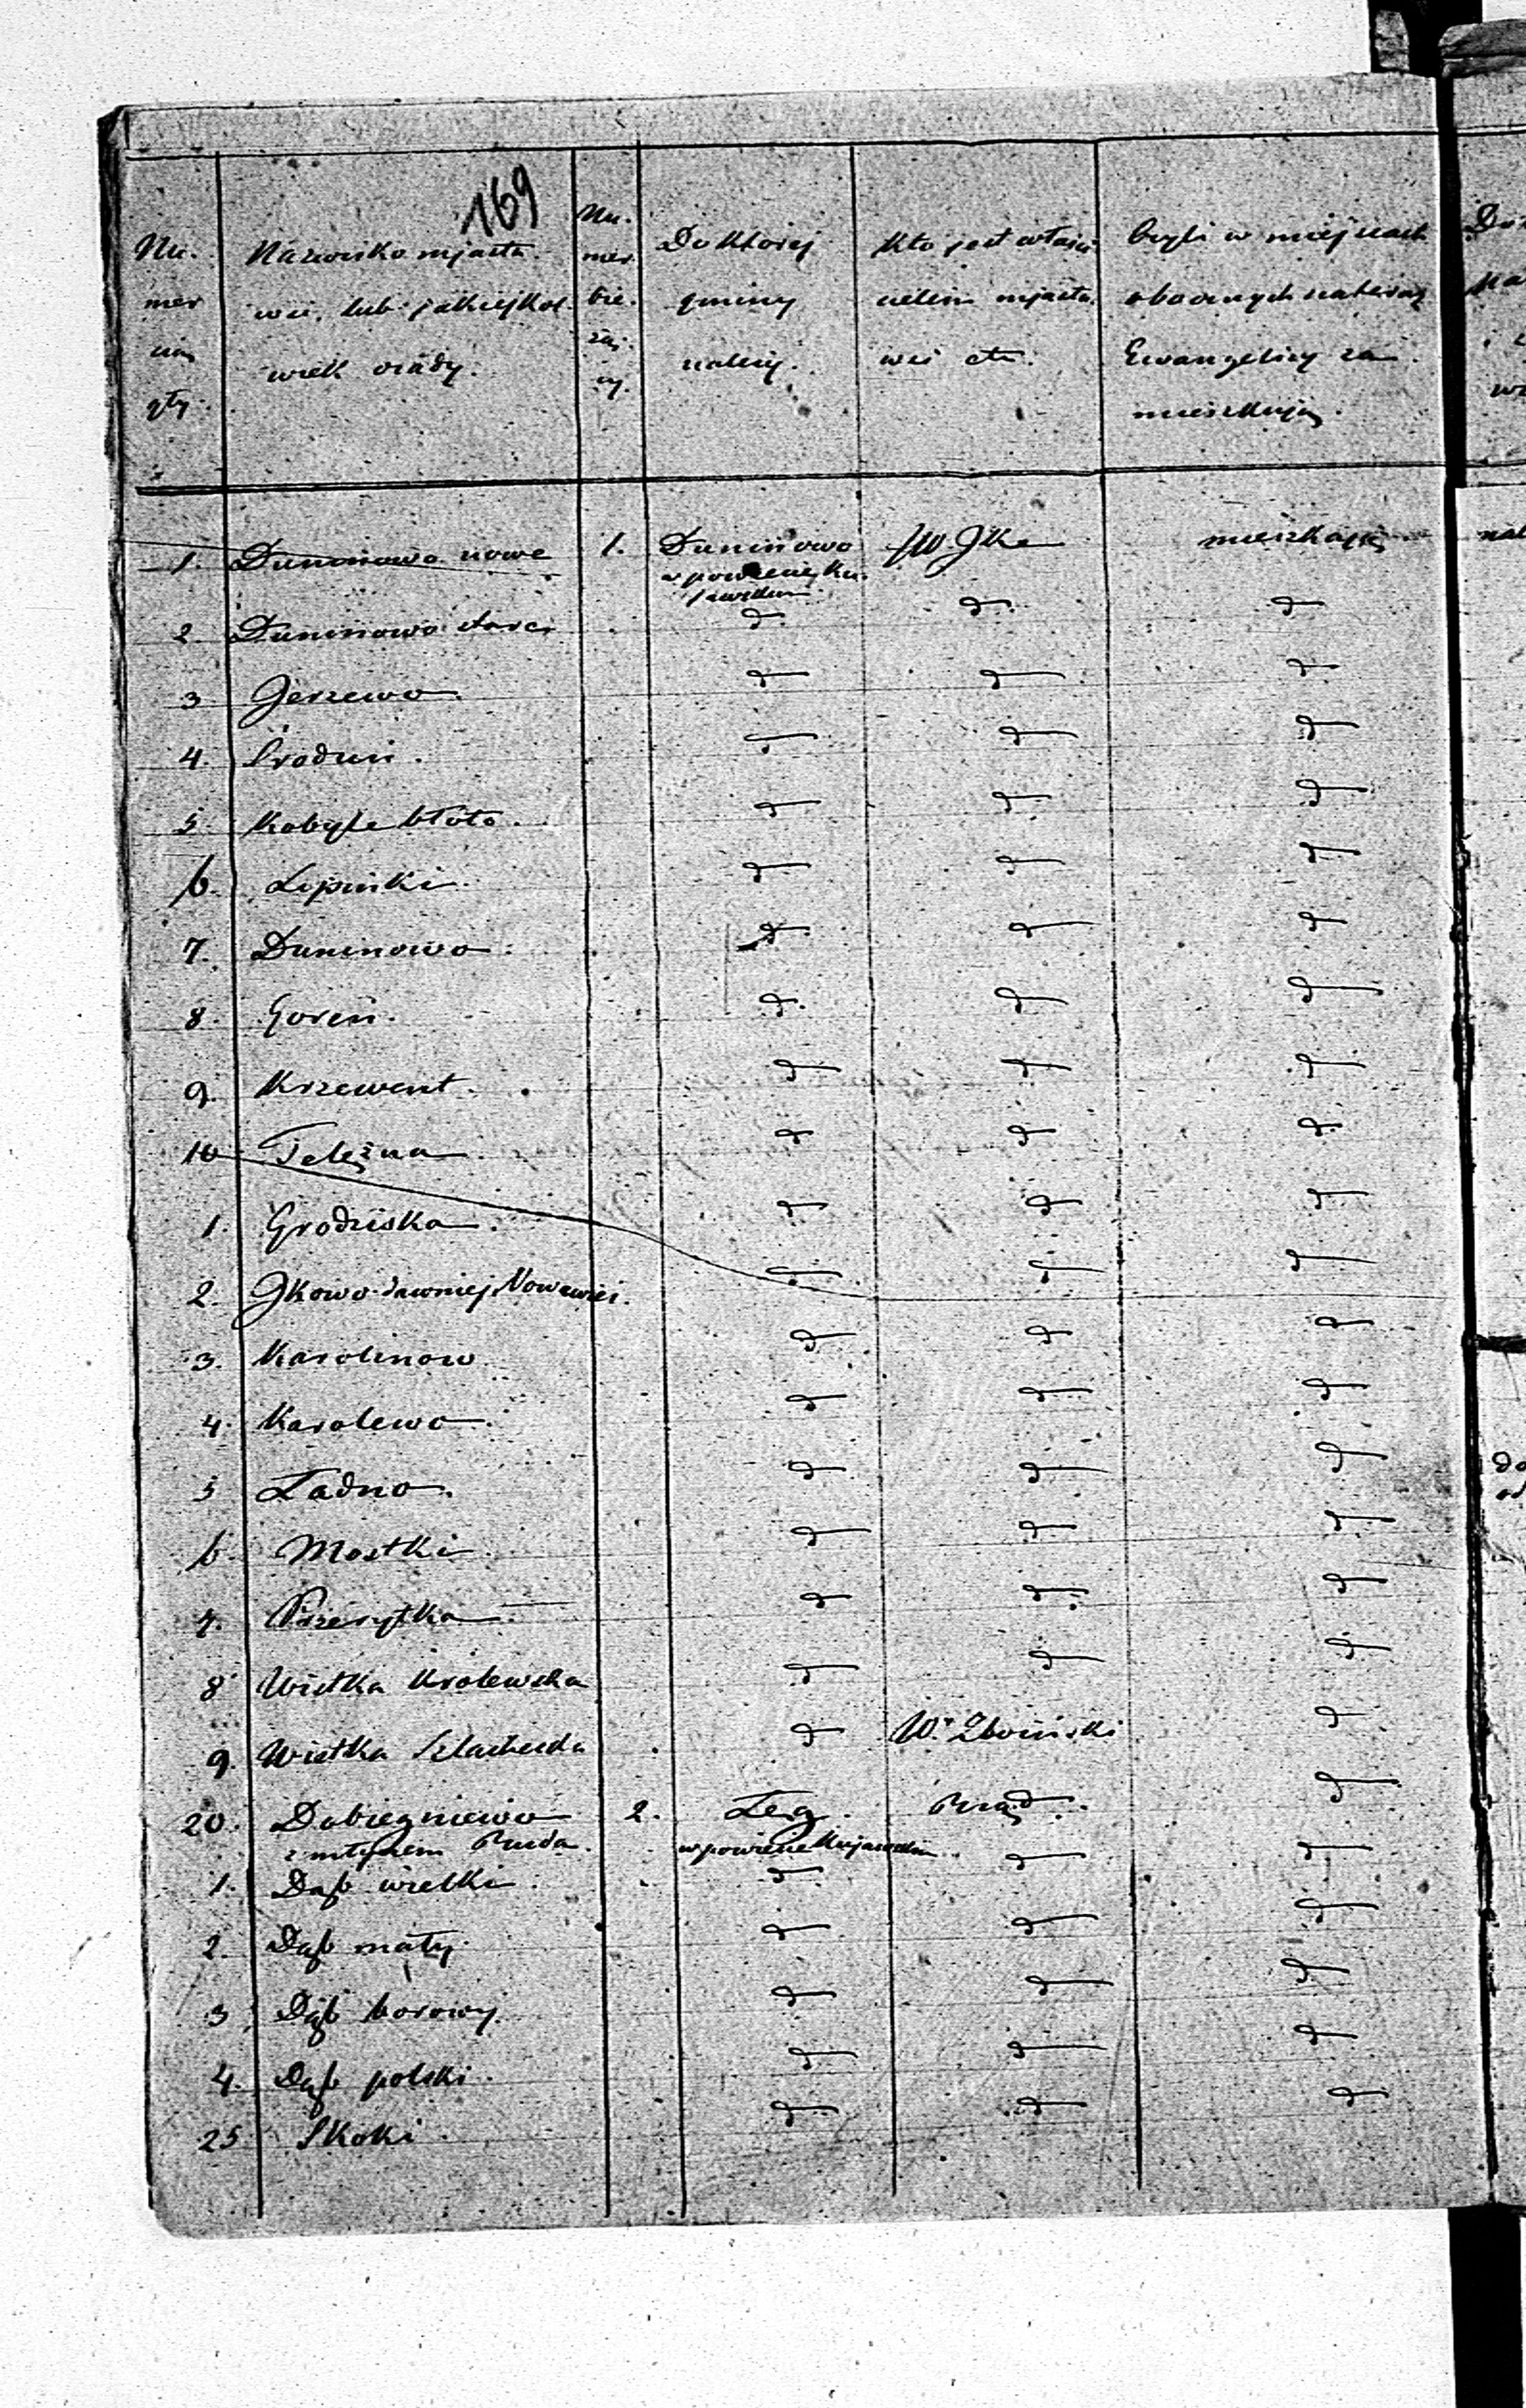 169
Nu.
mer
gły.
Nazwisko mjasta.
wsi, lub jakiejkol
wiek osady.
Nu.
mer
bie.
żą.
cy.
Do którey
gminy
należy.
Kto jest właści
cielem mjasta
wsi etc.
Czyli w miejscach
obocznych
Ewangelicy za
mieszkują.
1. Duninowo nowe 1. Duninowo mieszkają
w powiecie Ku.
jawskim
2 Duninowo stare d d d
3 Jerzewo. d d d
4. Srodun. d d d
5. Kobyle błoto. d d d
6. Lipinki. d d d
7. Duninowo. d d d
8. Goreń. d d d
9. Krzewent. d d d
10 Telążna d d d
1. Grodziska. d d d
2. Jkowo dawniej Nowawieś. d d d
3. Karolinow d d d
4. Karolewo. d d d
5 Ładno. d d d
6. Mostki d d d
7. d d d
8 Wistka Krolewska d d d
9. Wistka Szlachecka d W. Zboiński d
20. Dobiegniewo 2. Łęg. Rząd. d
z młynem Ruda. w powiecie Kujawskim
1. Dąb wielki. d d d
2. Dąb mały. d d d
3 Dąb borowy. d d d
4. Dąb polski. d d d
25 Skoki. d d d